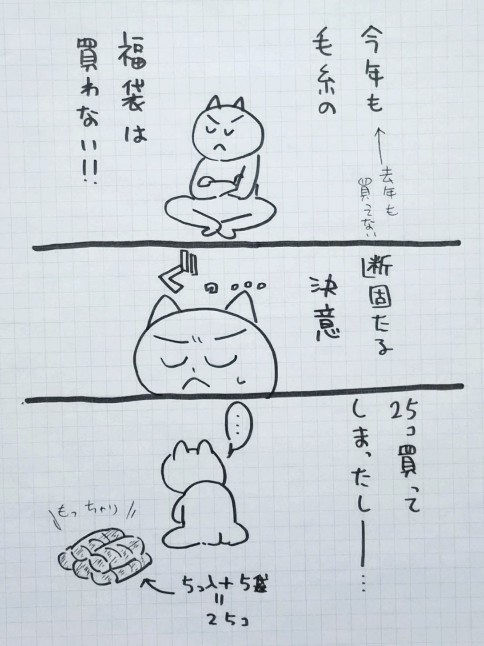 今年も
毛糸の
←去年も
買ってない
福袋は
買わない!!
断固たる
決意
ぐ
ロ...
25コ買って
しまったしー…
…
もっちゃり
5コ入+5袋
=
25コ